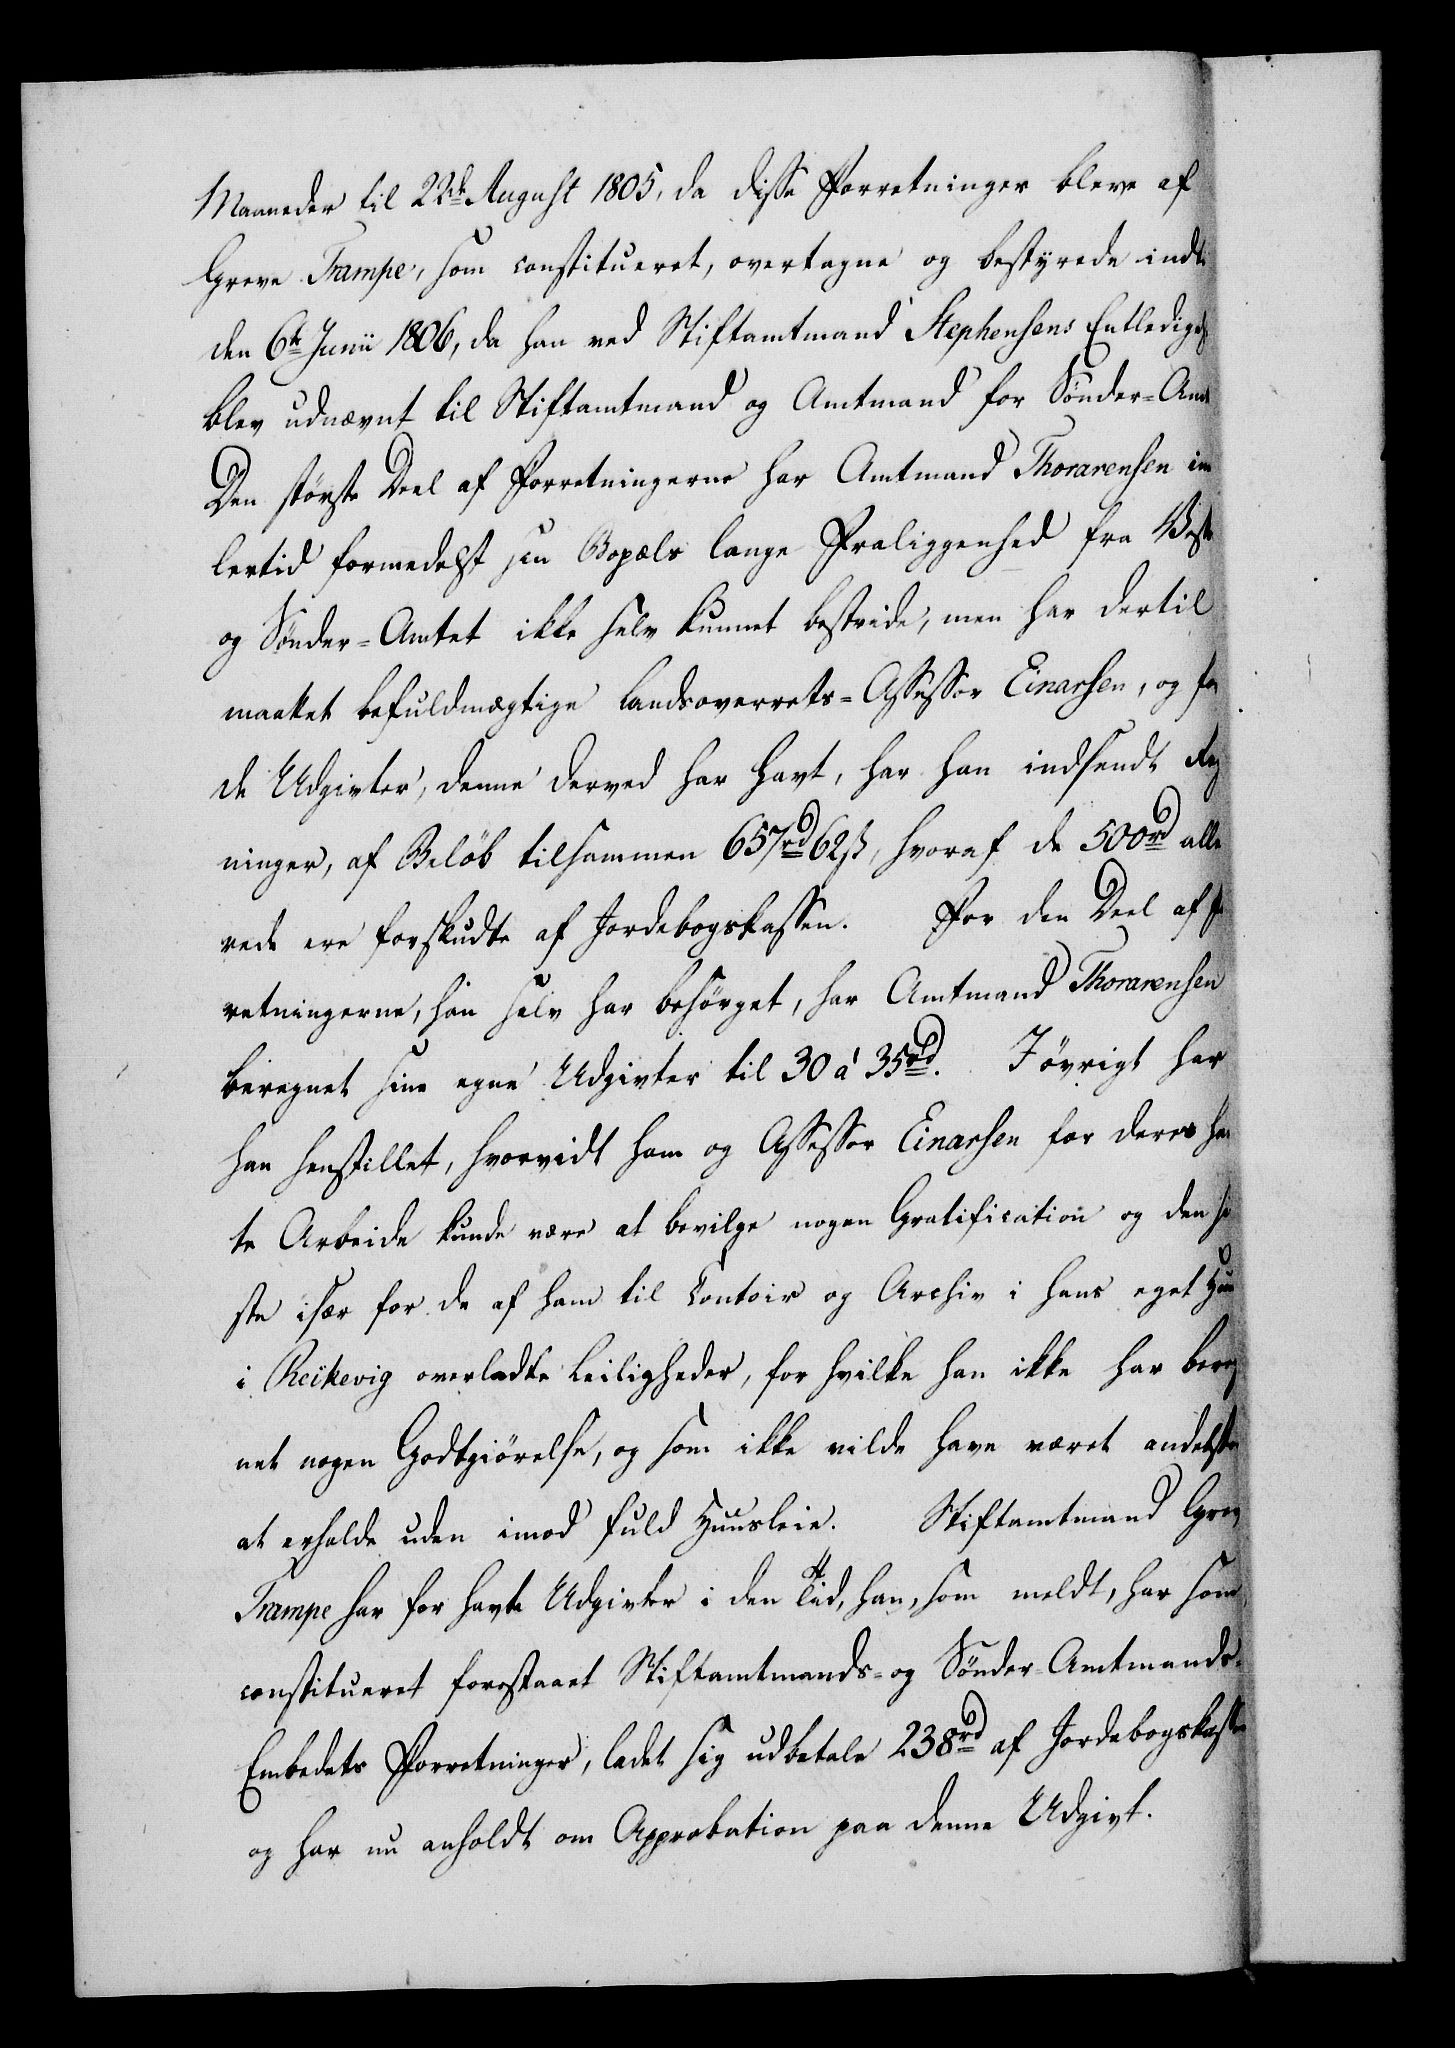 Maaneder til 22de August 1805, da disse Forretninger bleve af
Greve Trampe, som constitueret, overtagne og bestyrede indti
den 6te Junii 1806, da han ved Stiftamtmand Stephensens Entledigels
blev udnævnt til Stiftamtmand og Amtmand for Sønder-Amt
Den største Deel af Forretningerne har Amtmand Thorarensen im
lertid formedelst sin Bopæls lange Fraliggenhed fra Vest
og Sønder-Amtet ikke selv kunnet bestride, men har dertil
maattet befuldmægtige Landsoverrets-Assessor Einarsen, og for
de Udgivter, denne derved har havt, har han indsendt Reg
ninger, af Beløb tilsammen 657rd 62ß, hvoraf de 500rd alle
rede ere forskudte af Jordebogskassen. For den Deel af fo
retningerne, han selv har besørget, har Amtmand Thorarensen
beregnet sine egne Udgivter til 30 à 35rd. I øvrigt har
han henstillet, hvorvidt ham og Assessor Einarsen for deres hav
te Arbeide kunde være at bevilge nogen Gratification og den si
ste især for de af ham til Contoir og Archiv i hans eget Huu
i Reikevig overladte Leiligheder, for hvilke han ikke har bereg
net nogen Godtgiørelse, og som ikke vilde have været andetsteds
at erholde uden imod fuld Huusleie. Stiftamtmand Grev
Trampe har for havte Udgivter i den Tid, han, som meldt, har som
constitueret forestaaet Stiftamtmands- og Sønder-Amtmands-
Embedets Forretninger, ladet sig udbetale 238rd af Jordebogskassen
og har nu anholdt om Approbation paa denne Udgivt.